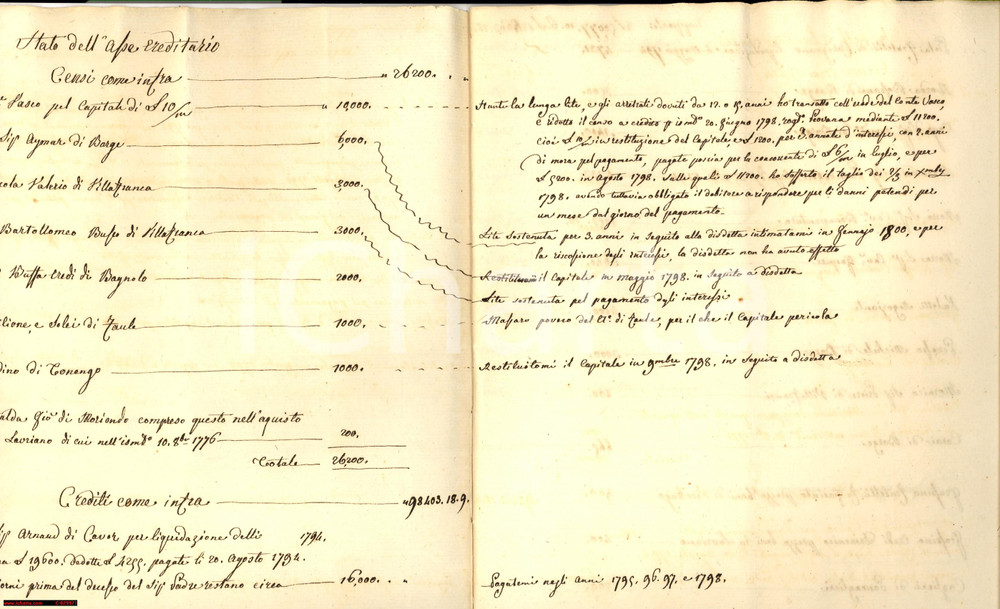 Stato dell'Asse Ereditario
Censi come infra " 26200. "
Vasco pel Capitale di £ 10/m " 10,000.
Sig Aymar di Barge 6,000.
Valerio di Villafranca 3000.
Bartollomeo Busso di Villafranca 3000.
Buffa Eredi di Bagnolo 2000.
e Solei di 1000.
dino di Tonengo 1000.
Gio di Moriondo compreso questo nell'aquisto
Lauriano di cui nell'ismo 10. 8bre 1776 200.
Totale 26,200.
Crediti come infra " 98403.18.9.
Sig Arnaud di Cavor per liquidazione delli 1794.
£ 19600. dedotte £ 4255. pagate li 20. Agosto 1794.
giorni prima del decesso del Sig Padre restano circa 16,000. "
Stante la lunga lite, e gli arretrati dovuti da 12. o 15. anni ho transatto coll'erede del Conte Vasco,
e ridotto il censo a credito ismo 20. Giugno 1798. rog Piovana mediante £ 11200.
cioè £ 10/m in restituzione del Capitale e £ 1200. per 3. annate d'interessi, con 2. anni
di mora pel pagamento, pagate poscia per la concorrente di £ 6/m in luglio, e per
£ 5200. in Agosto 1798. sulle quali £ 11200. ho sofferto il taglio dei 2/3 in Xmbre
1798. avendo tuttavia obbligato il debitore a rispondere per li danni patendi per
un mese dal giorno del pagamento.
Lite sostenuta per 3. anni in seguito alla disdetta intimatami in Gennajo 1800, e per
la riscossione degli interessi, la disdetta non ha avuto effetto
Restituitomi il Capitale in maggio 1798. in seguito a disdetta
Lite sostenuta pel pagamento degli interessi
Massaro povero del di, per il che il Capitale pericola
Restituitomi il Capitale in 9mbre 1798. in seguito a disdetta
Pagatemi negli Anni 1795. 96. 97. e 1798.